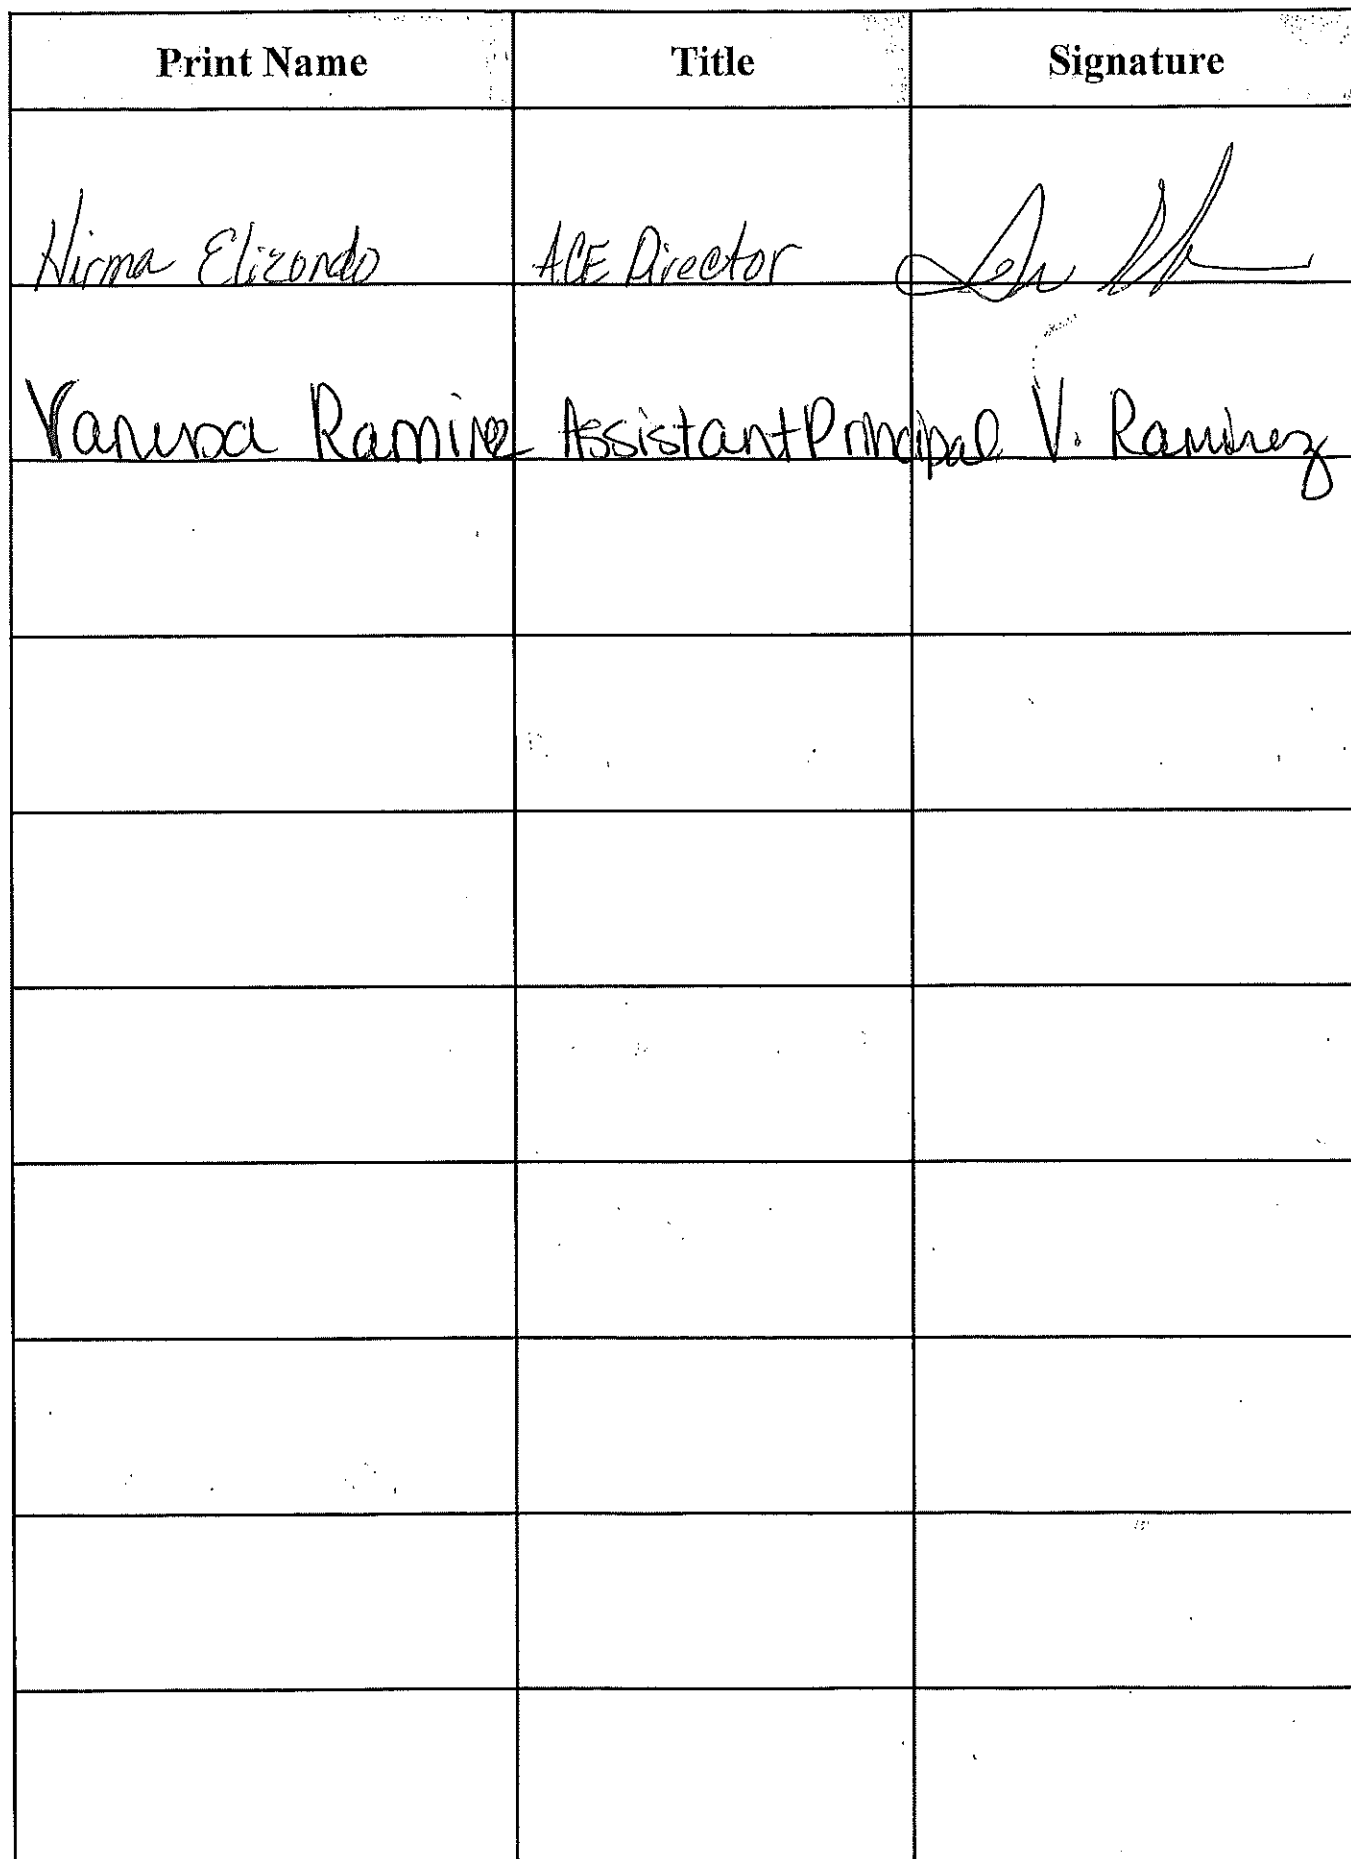 Print Name Title Signature
Elizondo ACE Director
Ramirez Assistant Principal V. Ramirez